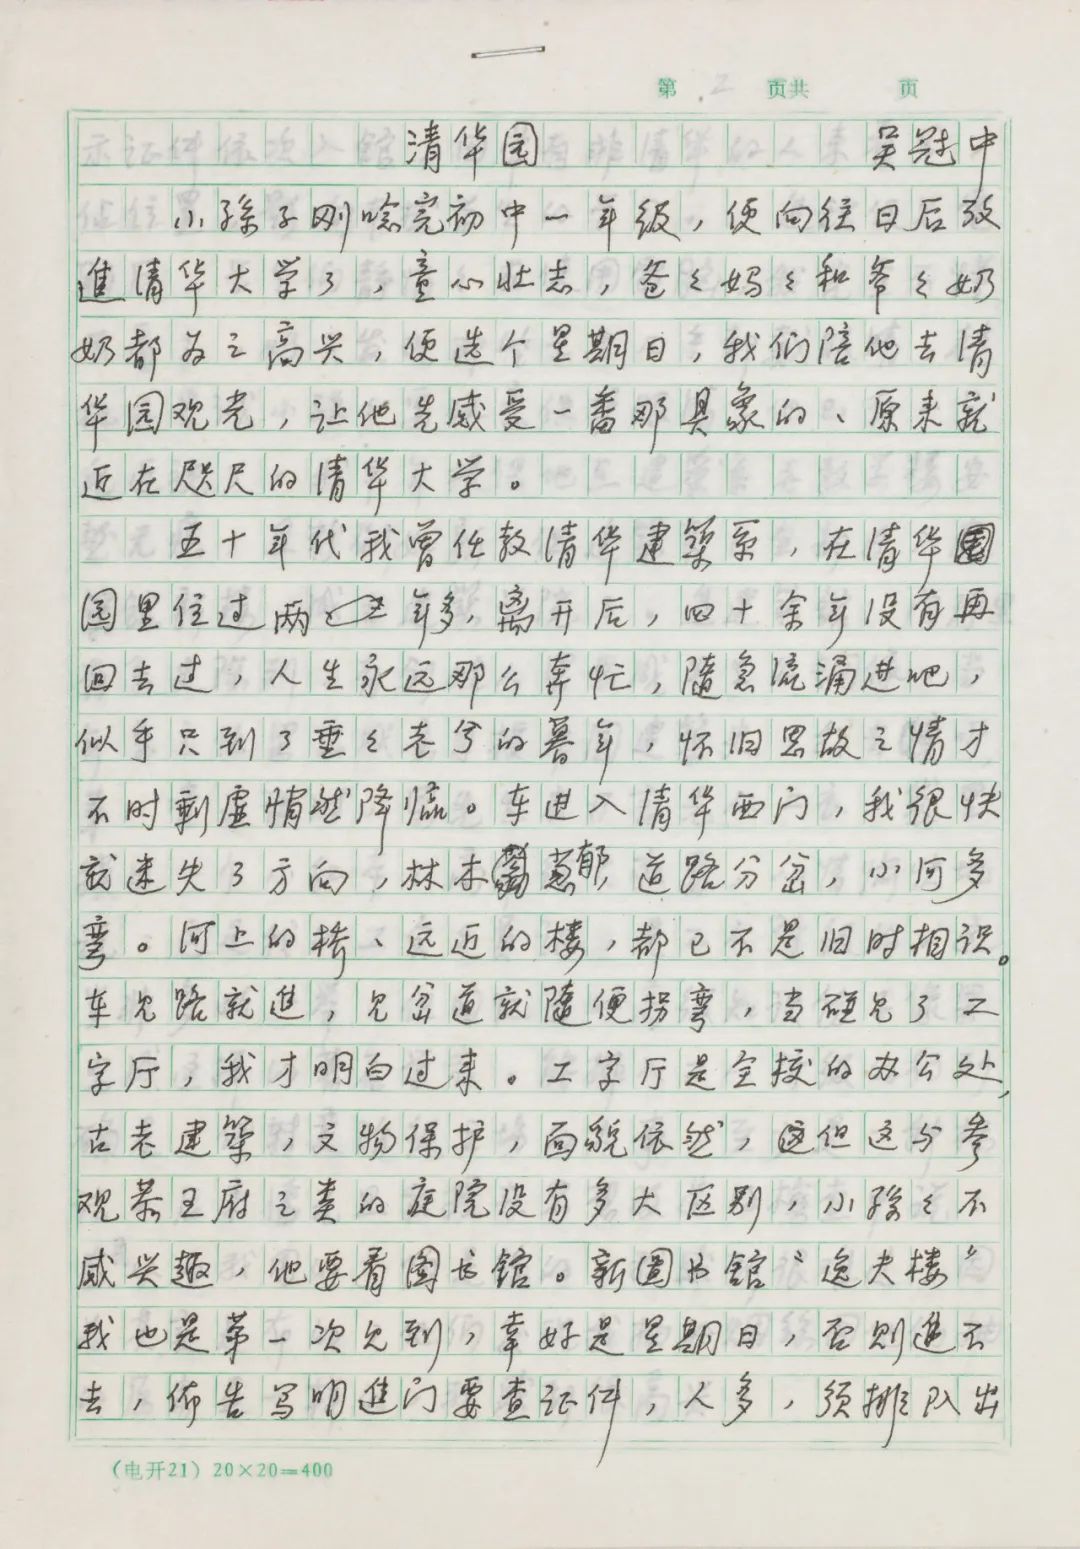 第 2 页共 页
清华园 吴冠中
小孫子刚唸完初中一年级，便向往日后放
進清华大学了，童心壮志，爸々妈々和爷々奶
奶都为之高兴，便选个星期日，我们陪他去清
华园观光，让他先感受一番那具象的、原来就
近在咫尺的清华大学。
五十年代我曾任教清华建築系，在清华
园里住过两年多，离开后，四十余年没有再
回去过，人生永远那么奔忙，隨急流涌进吧，
似乎只到了垂々老兮的暮年，怀旧思故之情才
不时剩虚悄然降临。车进入清华西门，我很快
就迷失了方向，林木葱郁，道路分岔，小河多
弯。河上的桥、远近的楼，都已不是旧时相识。
车见路就進，见岔道就隨便拐弯，当碰见了工
字厅，我才明白过来。工字厅是全校的办公处，
古老建築，文物保护，面貌依然，但这与参
观恭王府之类的庭院没有多大区别，小孫々不
感兴趣，他要看图书馆。新图书馆“逸夫楼”
我也是第一次见到，幸好是星期日，否则進不
去，佈告写明進门要查证件，人多，须排队出
（电开21）20×20=400